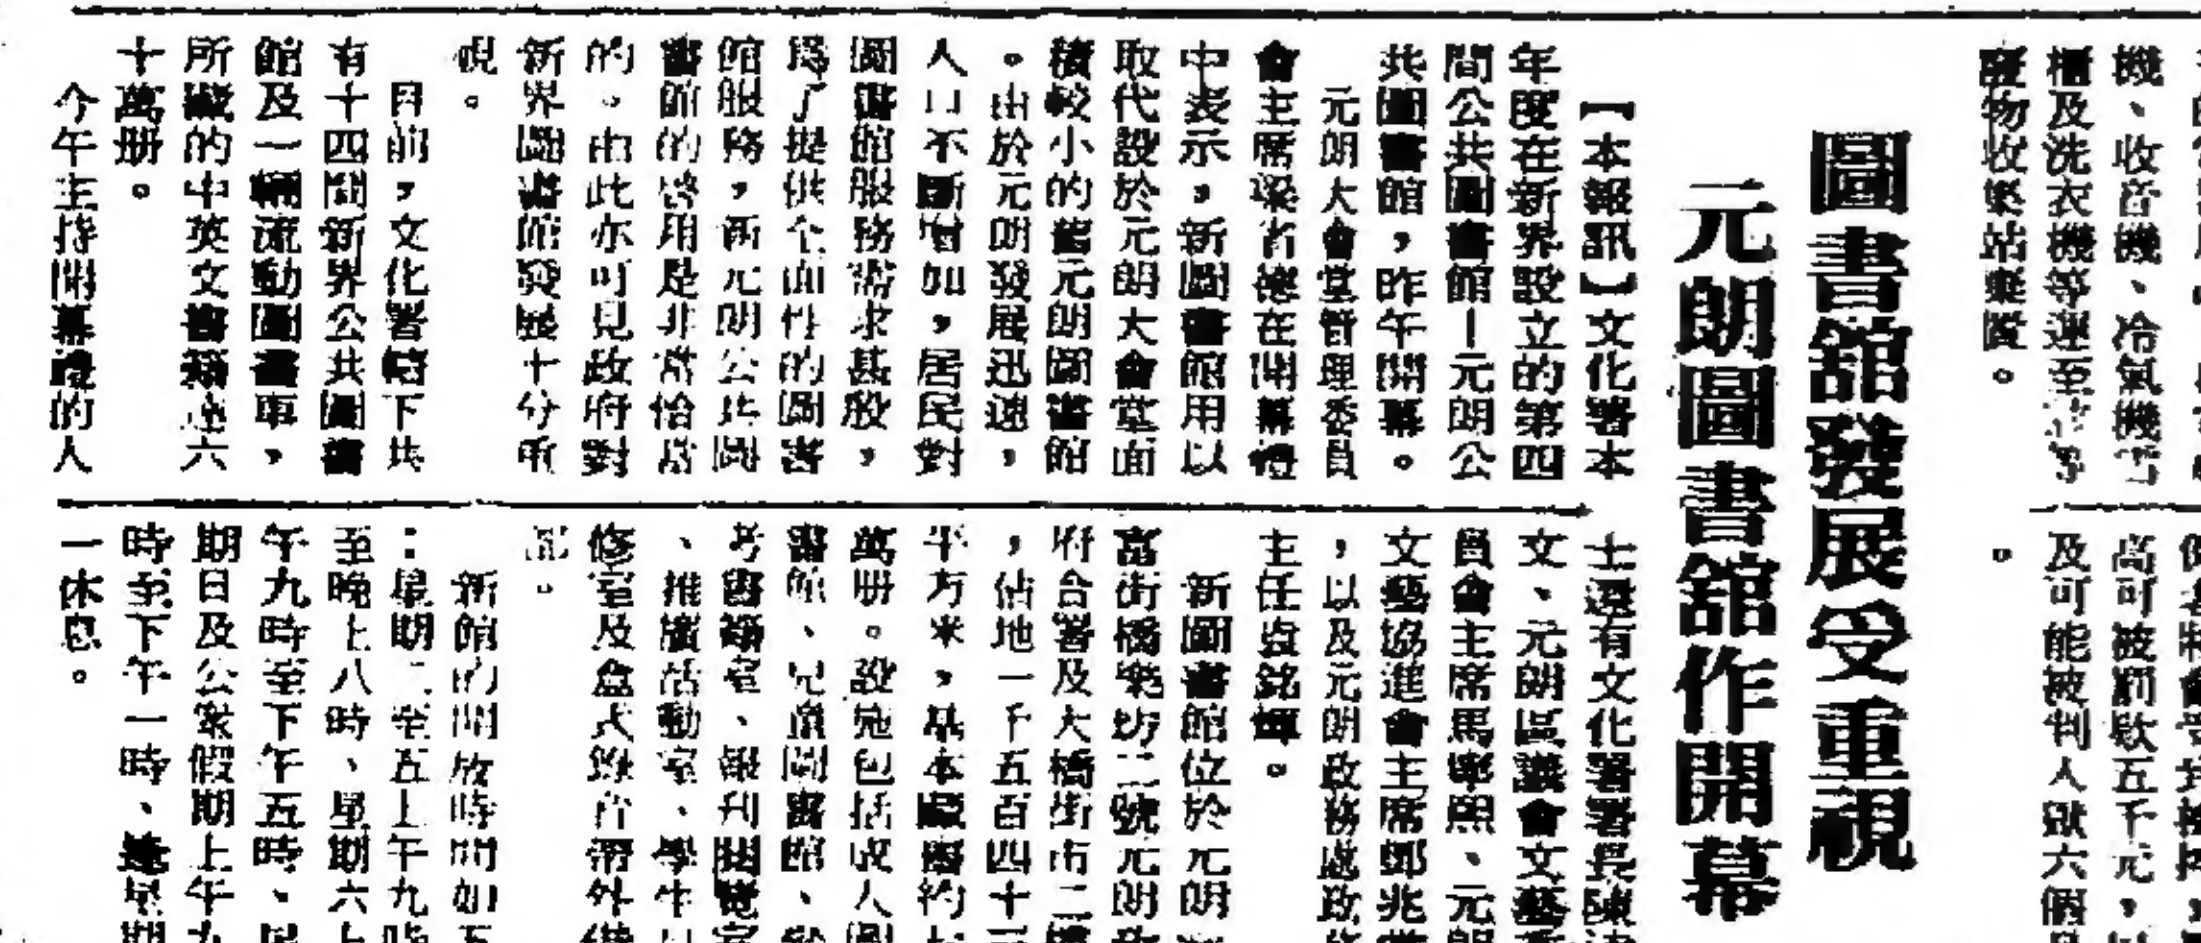 機、收音機、冷氣機
櫃及洗衣機等運至
廢物收集站棄置。
高可被罰款五千元,
及可能被判入獄六個
。
圖書館發展受重視
元朗圖書館作開幕
【本報訊】文化署本
年度在新界設立的第四
間公共圖書館—元朗公
共圖書館,昨午開幕。
元朗大會堂管理委員
會主席梁省德在開幕禮
中表示,新圖書館用以
取代設於元朗大會堂面
積較小的舊元朗圖書館
。由於元朗發展迅速,
人口不斷增加,居民對
圖書館服務需求甚殷,
爲了提供全面性的圖書
館服務,新元朗公共圖
書館的啓用是非常恰當
的。由此亦可見政府對
新界圖書館發展十分重
視。
目前,文化署轄下共
有十四間新界公共圖書
館及一輛流動圖書車,
所藏的中英文書籍達六
十萬册。
今午主持開幕禮的人
士還有文化署署長陳
文、元朗區議會文藝
員會主席馬 照、元朗
文藝協進會主席鄧兆
,以及元朗政務處政
主任 銘 。
新圖書館位於元朗
富街橋樂坊二號元朗政
府合署及大橋街市二樓
,佔地一千五百四十
平方米,基本藏書約
萬册。設施包括成人圖
書館、兒童圖書館、
考書籍室、報刊閱覽室
、推廣活動室、學生
修室及盒式錄音帶外借
部。
新館的開放時間如下
:星期二至五上午九時
至晚上八時、星期六上
午九時至下午五時、星
期日及公衆假期上午九
時至下午一時、逢星期
一休息。